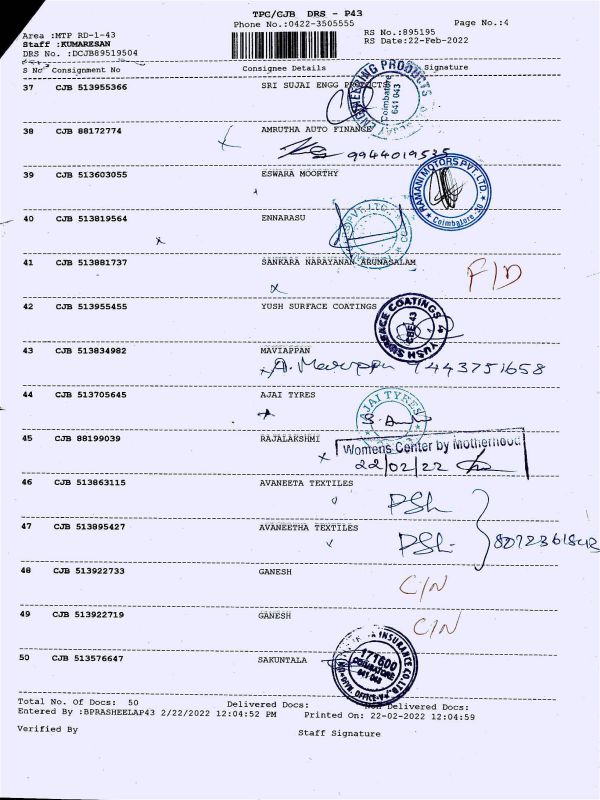 TPC/CJB DRS - P43
Phone No.:0422-3505555
Page No.:4
Area :MTP RD-1-43
Staff :KUMARESAN
DRS No. :DCJB89519504
RS No.:895195
RS Date:22-Feb-2022
S No Consignment No Consignee Details Signature
37 CJB 513955366 SRI SUJAI ENGG PRODUCTS
ENGINEERING PRODUCTS
Coimbatore
641 043
38 CJB 88172774 AMRUTHA AUTO FINANCE
9944019535
39 CJB 513603055 ESWARA MOORTHY
RAMANI MOTORS PVT. LTD.
Coimbatore
40 CJB 513819564 ENNARASU
41 CJB 513881737 SANKARA NARAYANAN ARUNASALAM
F/D
42 CJB 513955455 YUSH SURFACE COATINGS
YUSH SURFACE COATINGS
CBE-43
43 CJB 513834982 MAVIAPPAN
9443751658
44 CJB 513705645 AJAI TYRES
AJAI TYRES
45 CJB 88199039 RAJALAKSHMI
Womens Center by Motherhood
22/02/22
46 CJB 513863115 AVANEETA TEXTILES
47 CJB 513895427 AVANEETHA TEXTILES
48 CJB 513922733 GANESH
C/N
49 CJB 513922719 GANESH
C/N
50 CJB 513576647 SAKUNTALA
INSURANCE CO. LTD
171600
COIMBATORE
641 043
DIVN. OFFICE-V
Total No. Of Docs: 50 Delivered Docs: Non Delivered Docs:
Entered By :BPRASHEELAP43 2/22/2022 12:04:52 PM Printed On: 22-02-2022 12:04:59
Verified By Staff Signature